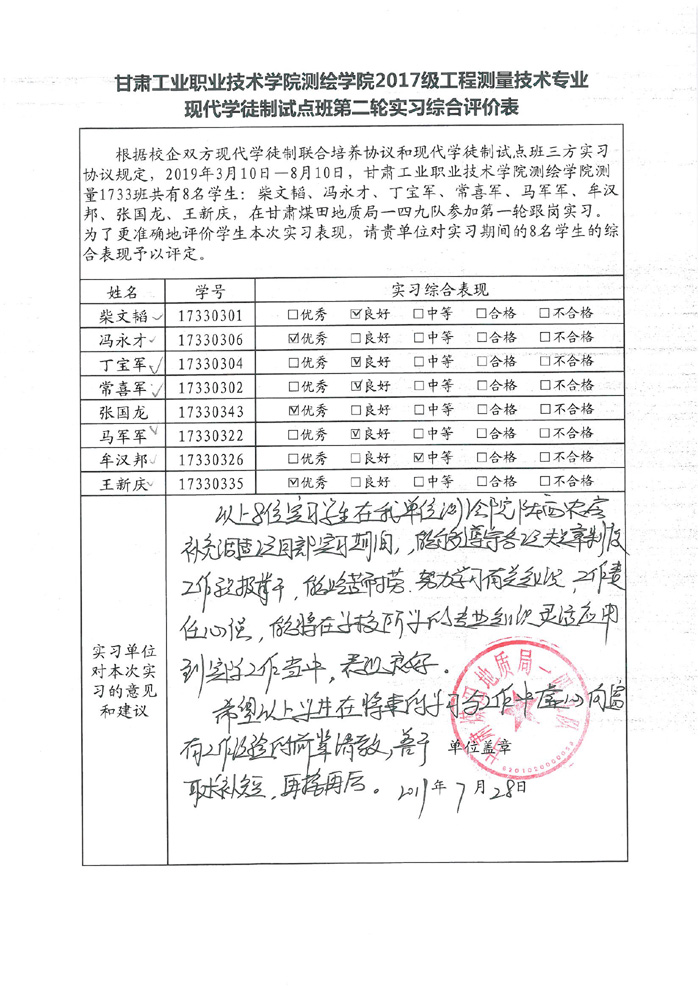 甘肃工业职业技术学院测绘学院2017级工程测量技术专业
现代学徒制试点班第二轮实习综合评价表
根据校企双方现代学徒制联合培养协议和现代学徒制试点班三方实习
协议规定，2019年3月10日—8月10日，甘肃工业职业技术学院测绘学院测
量1733班共有8名学生：柴文韬、冯永才、丁宝军、常喜军、马军军、牟汉
邦、张国龙、王新庆，在甘肃煤田地质局一四九队参加第一轮跟岗实习。
为了更准确地评价学生本次实习表现，请贵单位对实习期间的8名学生的综
合表现予以评定。
姓名 学号 实习综合表现
柴文韬 17330301 ☐优秀 ☑良好 ☐中等 ☐合格 ☐不合格
冯永才 17330306 ☑优秀 ☐良好 ☐中等 ☐合格 ☐不合格
丁宝军 17330304 ☐优秀 ☑良好 ☐中等 ☐合格 ☐不合格
常喜军 17330302 ☐优秀 ☑良好 ☐中等 ☐合格 ☐不合格
张国龙 17330343 ☑优秀 ☐良好 ☐中等 ☐合格 ☐不合格
马军军 17330322 ☐优秀 ☑良好 ☐中等 ☐合格 ☐不合格
牟汉邦 17330326 ☐优秀 ☐良好 ☑中等 ☐合格 ☐不合格
王新庆 17330335 ☑优秀 ☐良好 ☐中等 ☐合格 ☐不合格
实习单位
对本次实
习的意见
和建议
以上8位实习学生在我单位
补充调查项目部实习期间，能够遵守各项规章制度
工作积极肯干，能吃苦耐劳、努力学习有关知识，工作责
任心强，能将在学校所学的专业知识灵活应用
到实际工作当中，表现良好。
希望以上学生在将来的学习与工作中虚心向富
有工作经验的前辈请教，善于
取长补短，再接再厉。
单位盖章
2019年7月28日
甘肃煤田地质局一四九队